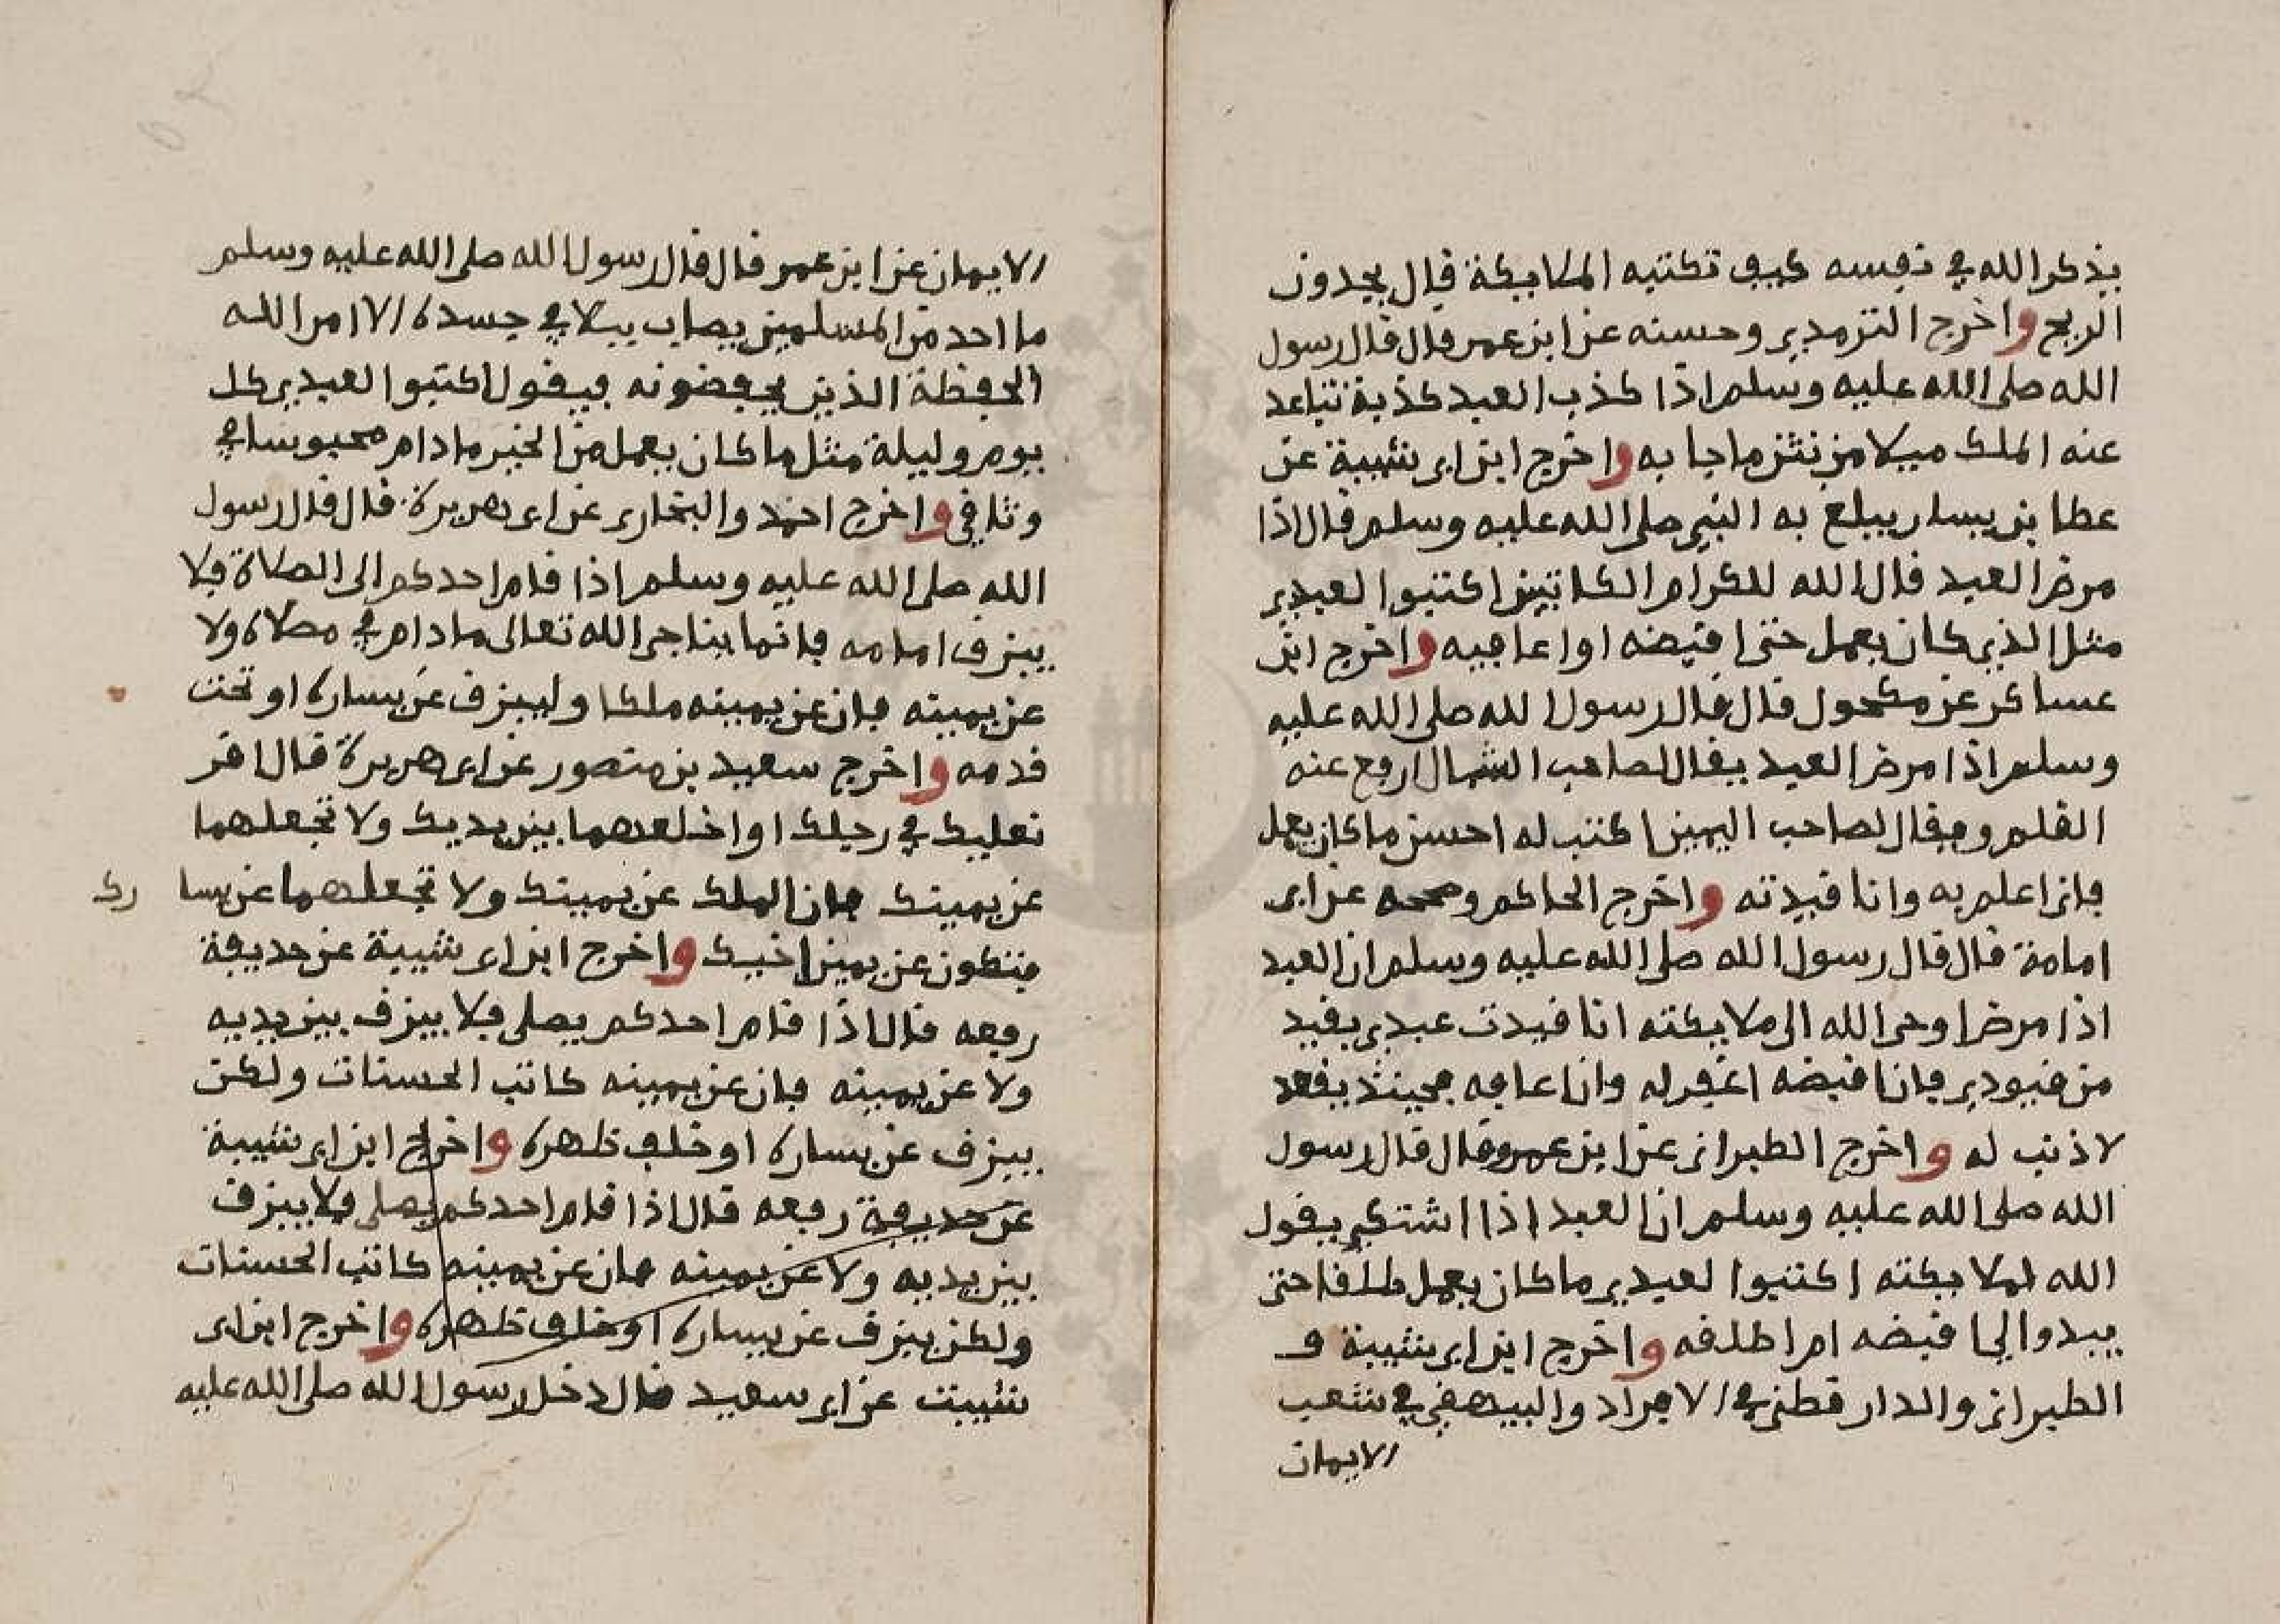 يذكر الله في نفسه كيف تكتبه الملايكة قال يجدون
الريح واخرج الترمذي وحسنه عن ابن عمر قال قال رسول
الله صلى الله عليه وسلم اذا كذب العبد كذبة تباعد
عنه الملك ميلا من نتن ما جا به واخرج ابن ابي شيبة عن
عطا بن يسار يبلغ به النبي صلى الله عليه وسلم قال اذا
مرض العبد قال الله للكرام الكاتبين اكتبوا لعبدي
مثل الذي كان يعمل حتى اقبضه او اعافيه واخرج ابن
عساكر عن مكحول قال قال رسول الله صلى الله عليه
وسلم اذا مرض العبد يقال لصاحب الشمال ارفع عنه
القلم ويقال لصاحب اليمين اكتب له احسن ما كان يعمل
فانى اعلم به وانا قيدته واخرج الحاكم وصححه عن ابي
امامة قال قال رسول الله صلى الله عليه وسلم ان العبد
اذا مرض اوحى الله الى ملايكته انا قيدت عبدي بقيد
من قيودي فان اقبضه اغفر له وان اعافه فحينئذ يقعد
لا ذنب له واخرج الطبراني عن ابن عمرو قال قال رسول
الله صلى الله عليه وسلم ان العبد اذا اشتكى يقول
الله لملايكته اكتبوا لعبدي ما كان يعمل طلقا حتى
يبدوا لي اقبضه ام اطلقه واخرج ابن ابي شيبة و
الطبراني والدار قطني في الافراد والبيهقي في شعب
الايمان
الايمان عن ابن عمر قال قال رسول الله صلى الله عليه وسلم
ما احد من المسلمين يصاب ببلا في جسده الا امر الله
الحفظة الذين يحفضونه فيقول اكتبوا لعبدي كل
يوم وليلة مثل ما كان يعمل من الخير ما دام محبوسا في
وثاقي واخرج احمد والبخاري عن ابي هريرة قال قال رسول
الله صلى الله عليه وسلم اذا قام احدكم الى الصلاة فلا
يبزق امامه فانما يناجي الله تعالى ما دام في مصلاه ولا
عن يمينه فان عن يمينه ملكا وليبزق عن يساره او تحت
قدمه واخرج سعيد بن منصور عن ابي هريرة قال اقر
نعليك في رجلك او اخلعهما بين يديك ولا تجعلهما
عن يمينك فان الملك عن يمينك ولا تجعلهما عن يسا رك
فتكون عن يمين اخيك واخرج ابن ابي شيبة عن حديفة
رفعه قال اذا قام احدكم يصلي فلا يبزق بين يديه
ولا عن يمينه فان عن يمينه كاتب الحسنات ولكن
يبزق عن يساره او خلف ظهره واخرج ابن ابي شيبة
عن حديفة رفعه قال اذا قام احدكم يصلي فلا يبزق
بين يديه ولا عن يمينه فان عن يمينه كاتب الحسنات
ولكن يبزق عن يساره او خلف ظهره واخرج ابن ابي
شيبت عن ابي سعيد قال دخل رسول الله صلى الله عليه